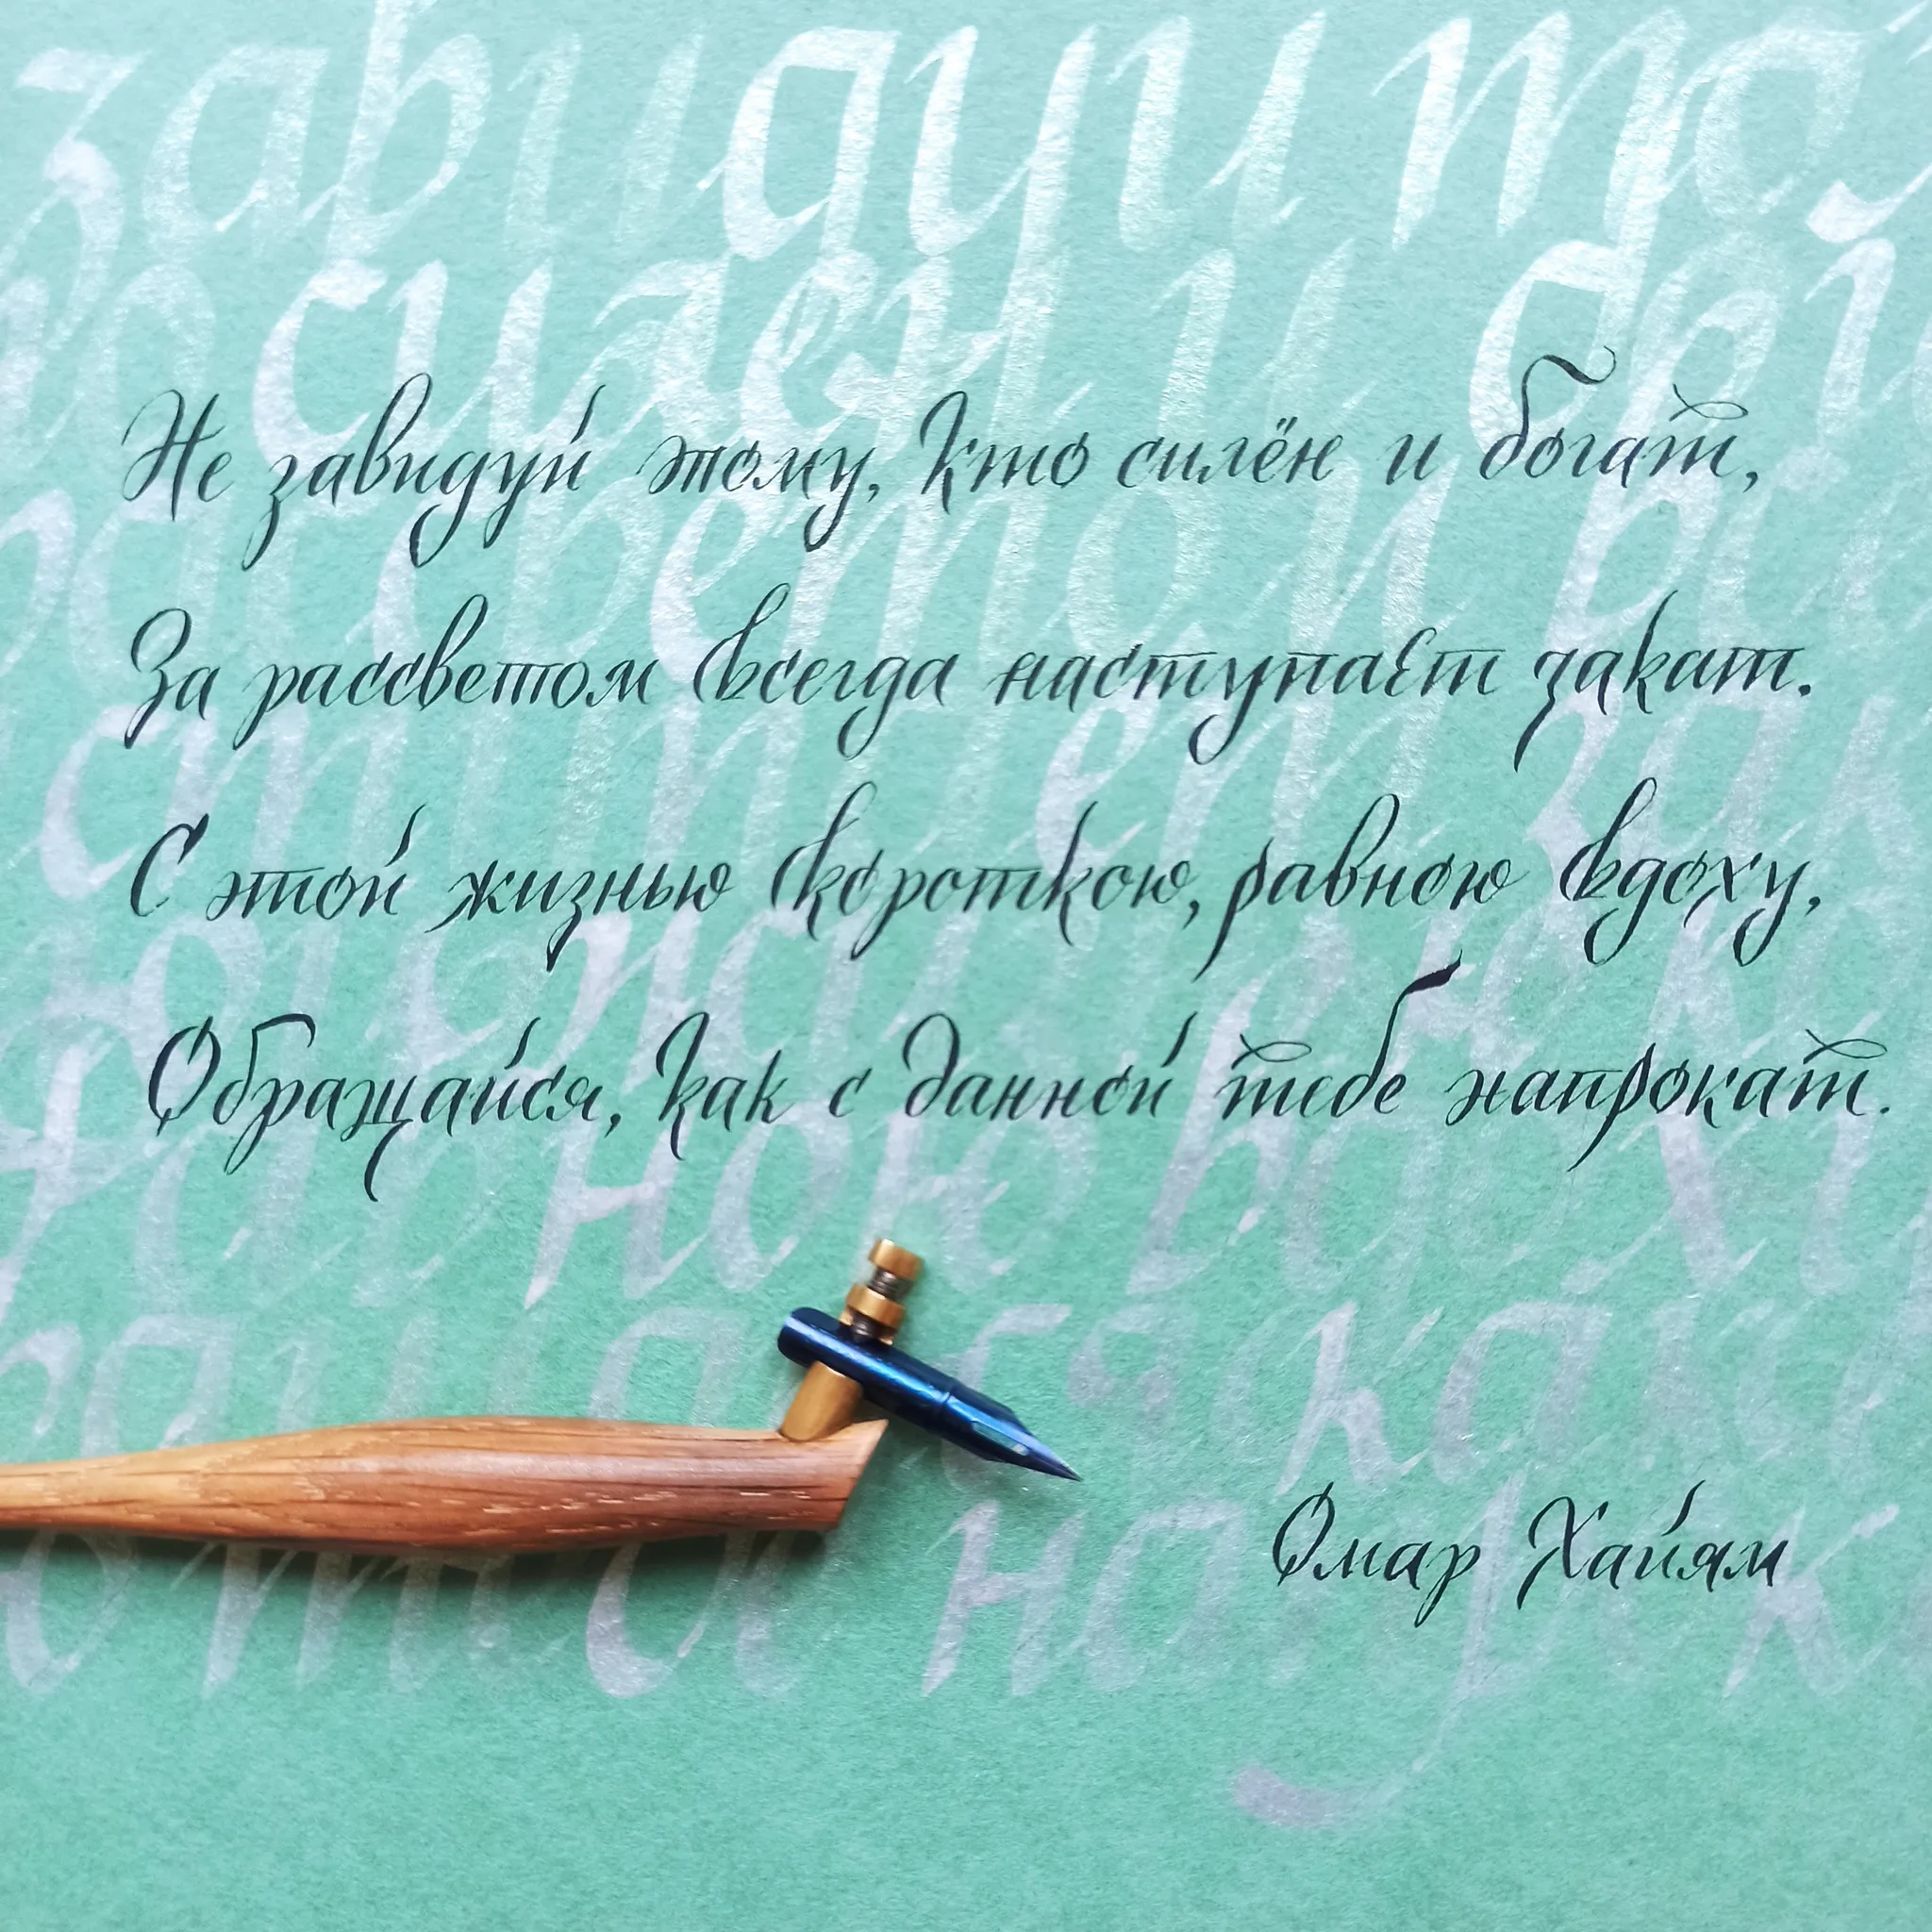 Не завидуй этому, кто силён и богат,
За рассветом всегда наступает закат.
С этой жизнью короткою, равною вдоху,
Обращайся, как с данной тебе напрокат.
Омар Хайям